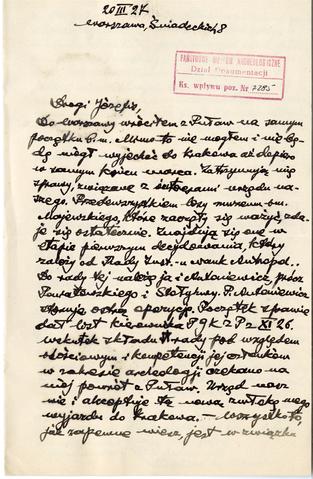 20 III 27
Warszawa, Śniadeckich 8
PAŃSTWOWE MUZEUM ARCHEOLOGICZNE
Dział Dokumentacji
Ks. wpływu poz. Nr 7285
Drogi Józefie,
Do Warszawy wróciłem z Puław na samym
początku b.m. Mimo to nie mogłem i nie bę-
dę mógł wyjechać do Krakowa aż dopiero
w samym końcu marca. Zatrzymują mię
sprawy, związane z urzędu na-
szego. Przedewszystkiem losy muzeum im.
Majewskiego, które zaczęły się ważyć, zda-
je się ostatecznie. Znajdują się one w
etapie pierwszym decydowania, który
zależy od Rady Antropol..
Do rady tej należą ja i Antoniewicz, prócz
i Stołyhwy. P. Antoniewicz
ostrą opozycję. Początek sprawie
dał list kierownika PGK z P z XI 26.
wskutek składu rady pod względem
ilościowym i kompetencji jej członków
w zakresie archeologji czekano na
mój powrót z Puław. Urząd nasz
wie i akceptuje tę nową zwłokę mego
wyjazdu do Krakowa. — Wszystko to,
jak zapewne wiesz, jest w związku